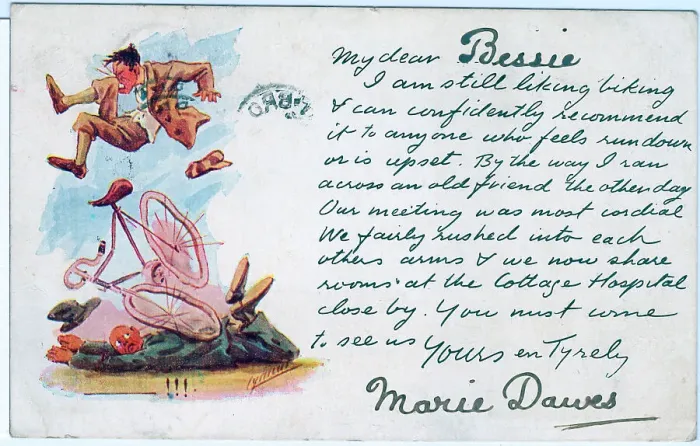 My dear Bessie
I am still liking biking
& can confidently recommend
it to anyone who feels rundown
or is upset. By the way I ran
across an old friend the other day
Our meeting was most cordial
We fairly rushed into each
others arms & we now share
rooms at the Cottage Hospital
close by. You must come
to see us Yours en Tyrely
Marie Dawes
!!!